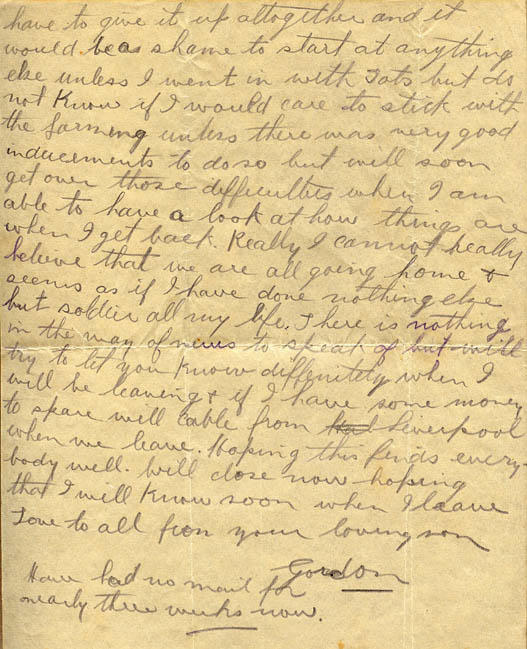 have to give it up altogether and it
would be a shame to start at anything
else unless I went in with Tats but do
not know if I would care to stick with
the farming unless there was very good
inducements to do so but will soon
get over those difficulties when I am
able to have a look at how things are
when I get back. Really I cannot really
believe that we are all going home &
seems as if I have done nothing else
but soldier all my life. There is nothing
in the way of news to speak of but will
try to let you know diffinitely when I
will be leaving & if I have some money
to spare will cable from Liverpool
when we leave. Hoping this finds every-
body well. Will close now hoping
that I will know soon when I leave
Love to all from your loving son
Gordon
Have had no mail for
nearly three weeks now.